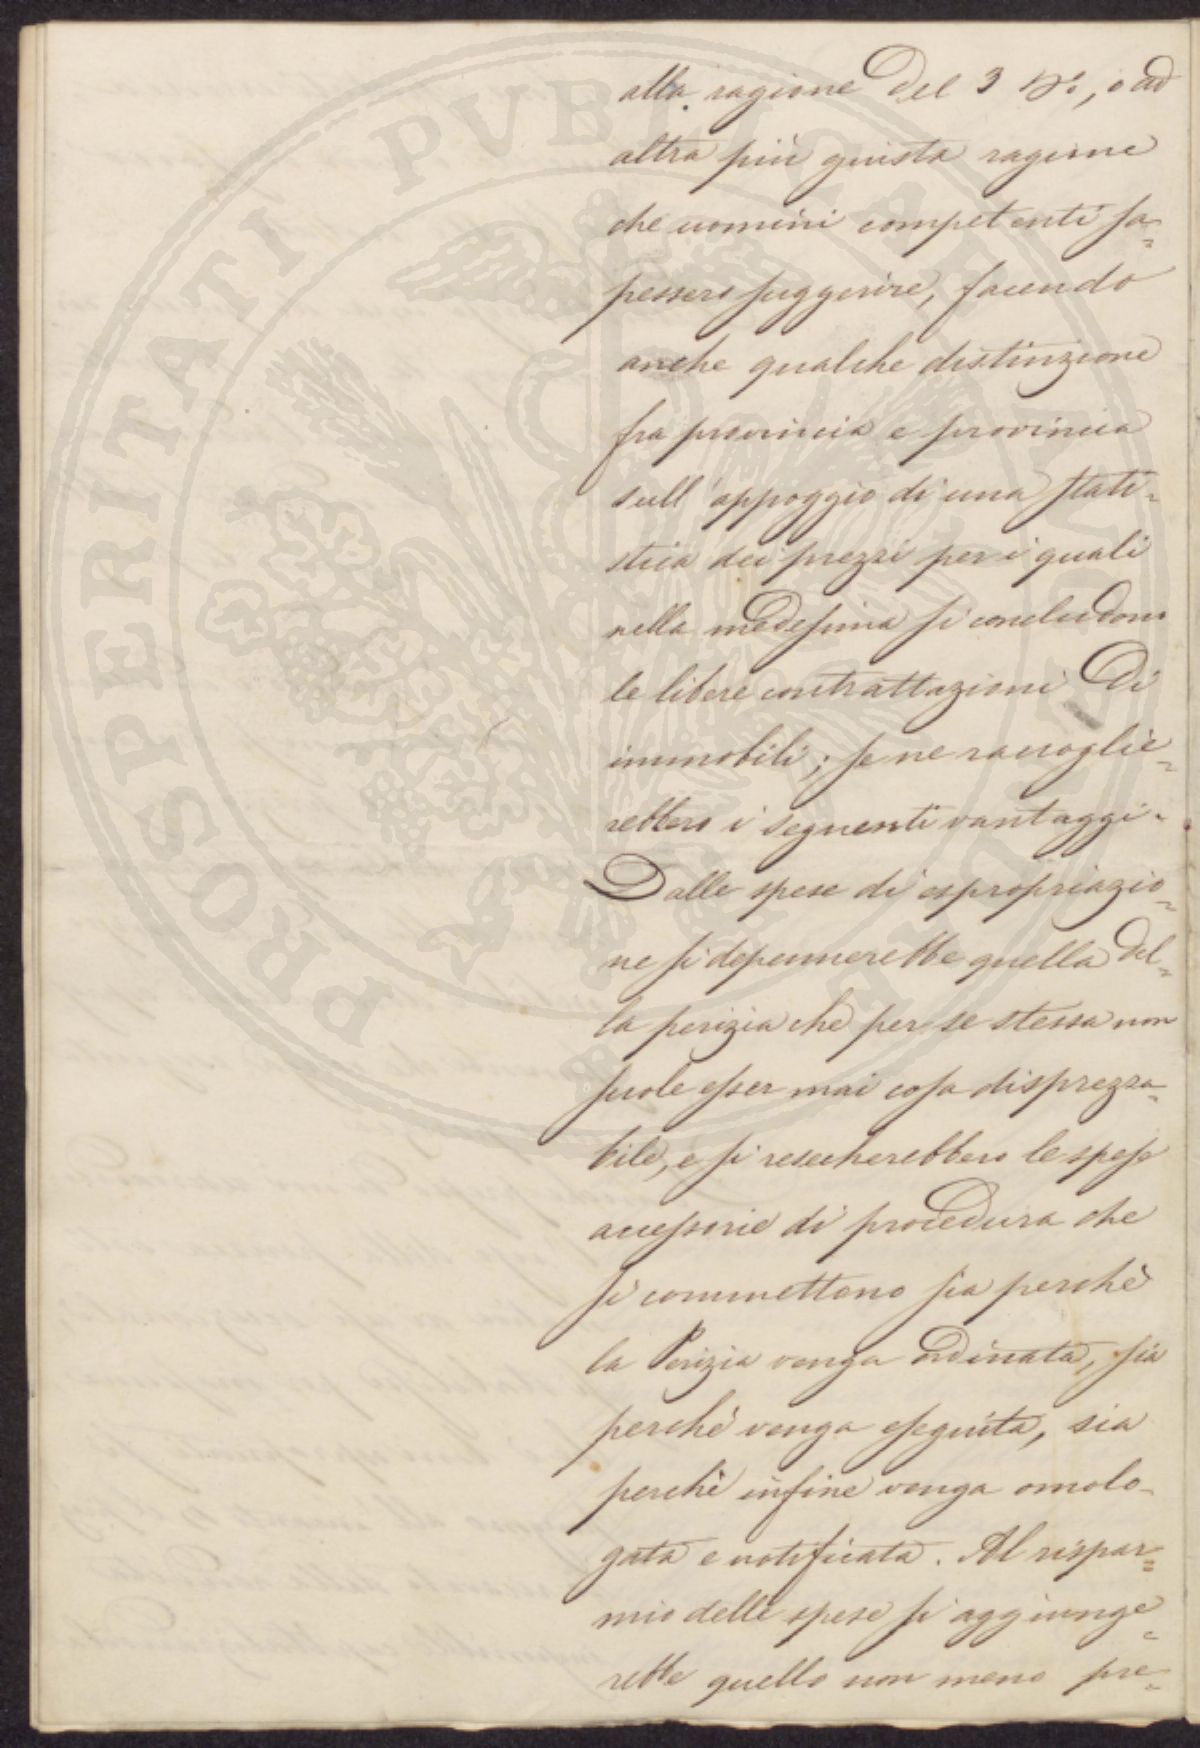 alla ragione del 3 %, o ad
altra più giusta ragione
che uomini competenti sa=
pessero suggerire, facendo
anche qualche distinzione
fra provincia e provincia
sull'appoggio di una stati=
stica dei prezzi per i quali
nella medesima si concludono
le libere contrattazioni di
immobili; se ne raccoglie=
rebbero i seguenti vantaggi.
Dalle spese di espropriazio=
ne si depennerebbe quella del=
la perizia che per se stessa non
suole esser mai cosa disprezza=
bile, e si resecherebbero le spese
accessorie di procedura che
si commettono sia perchè
la Perizia venga ordinata, sia
perchè venga eseguita, sia
perchè infine venga omolo-
gata e notificata. Al rispar=
mio delle spese si aggiunge=
rebbe quello non meno pre=
PROSPERITATI PVBLICAE AVGENDAE